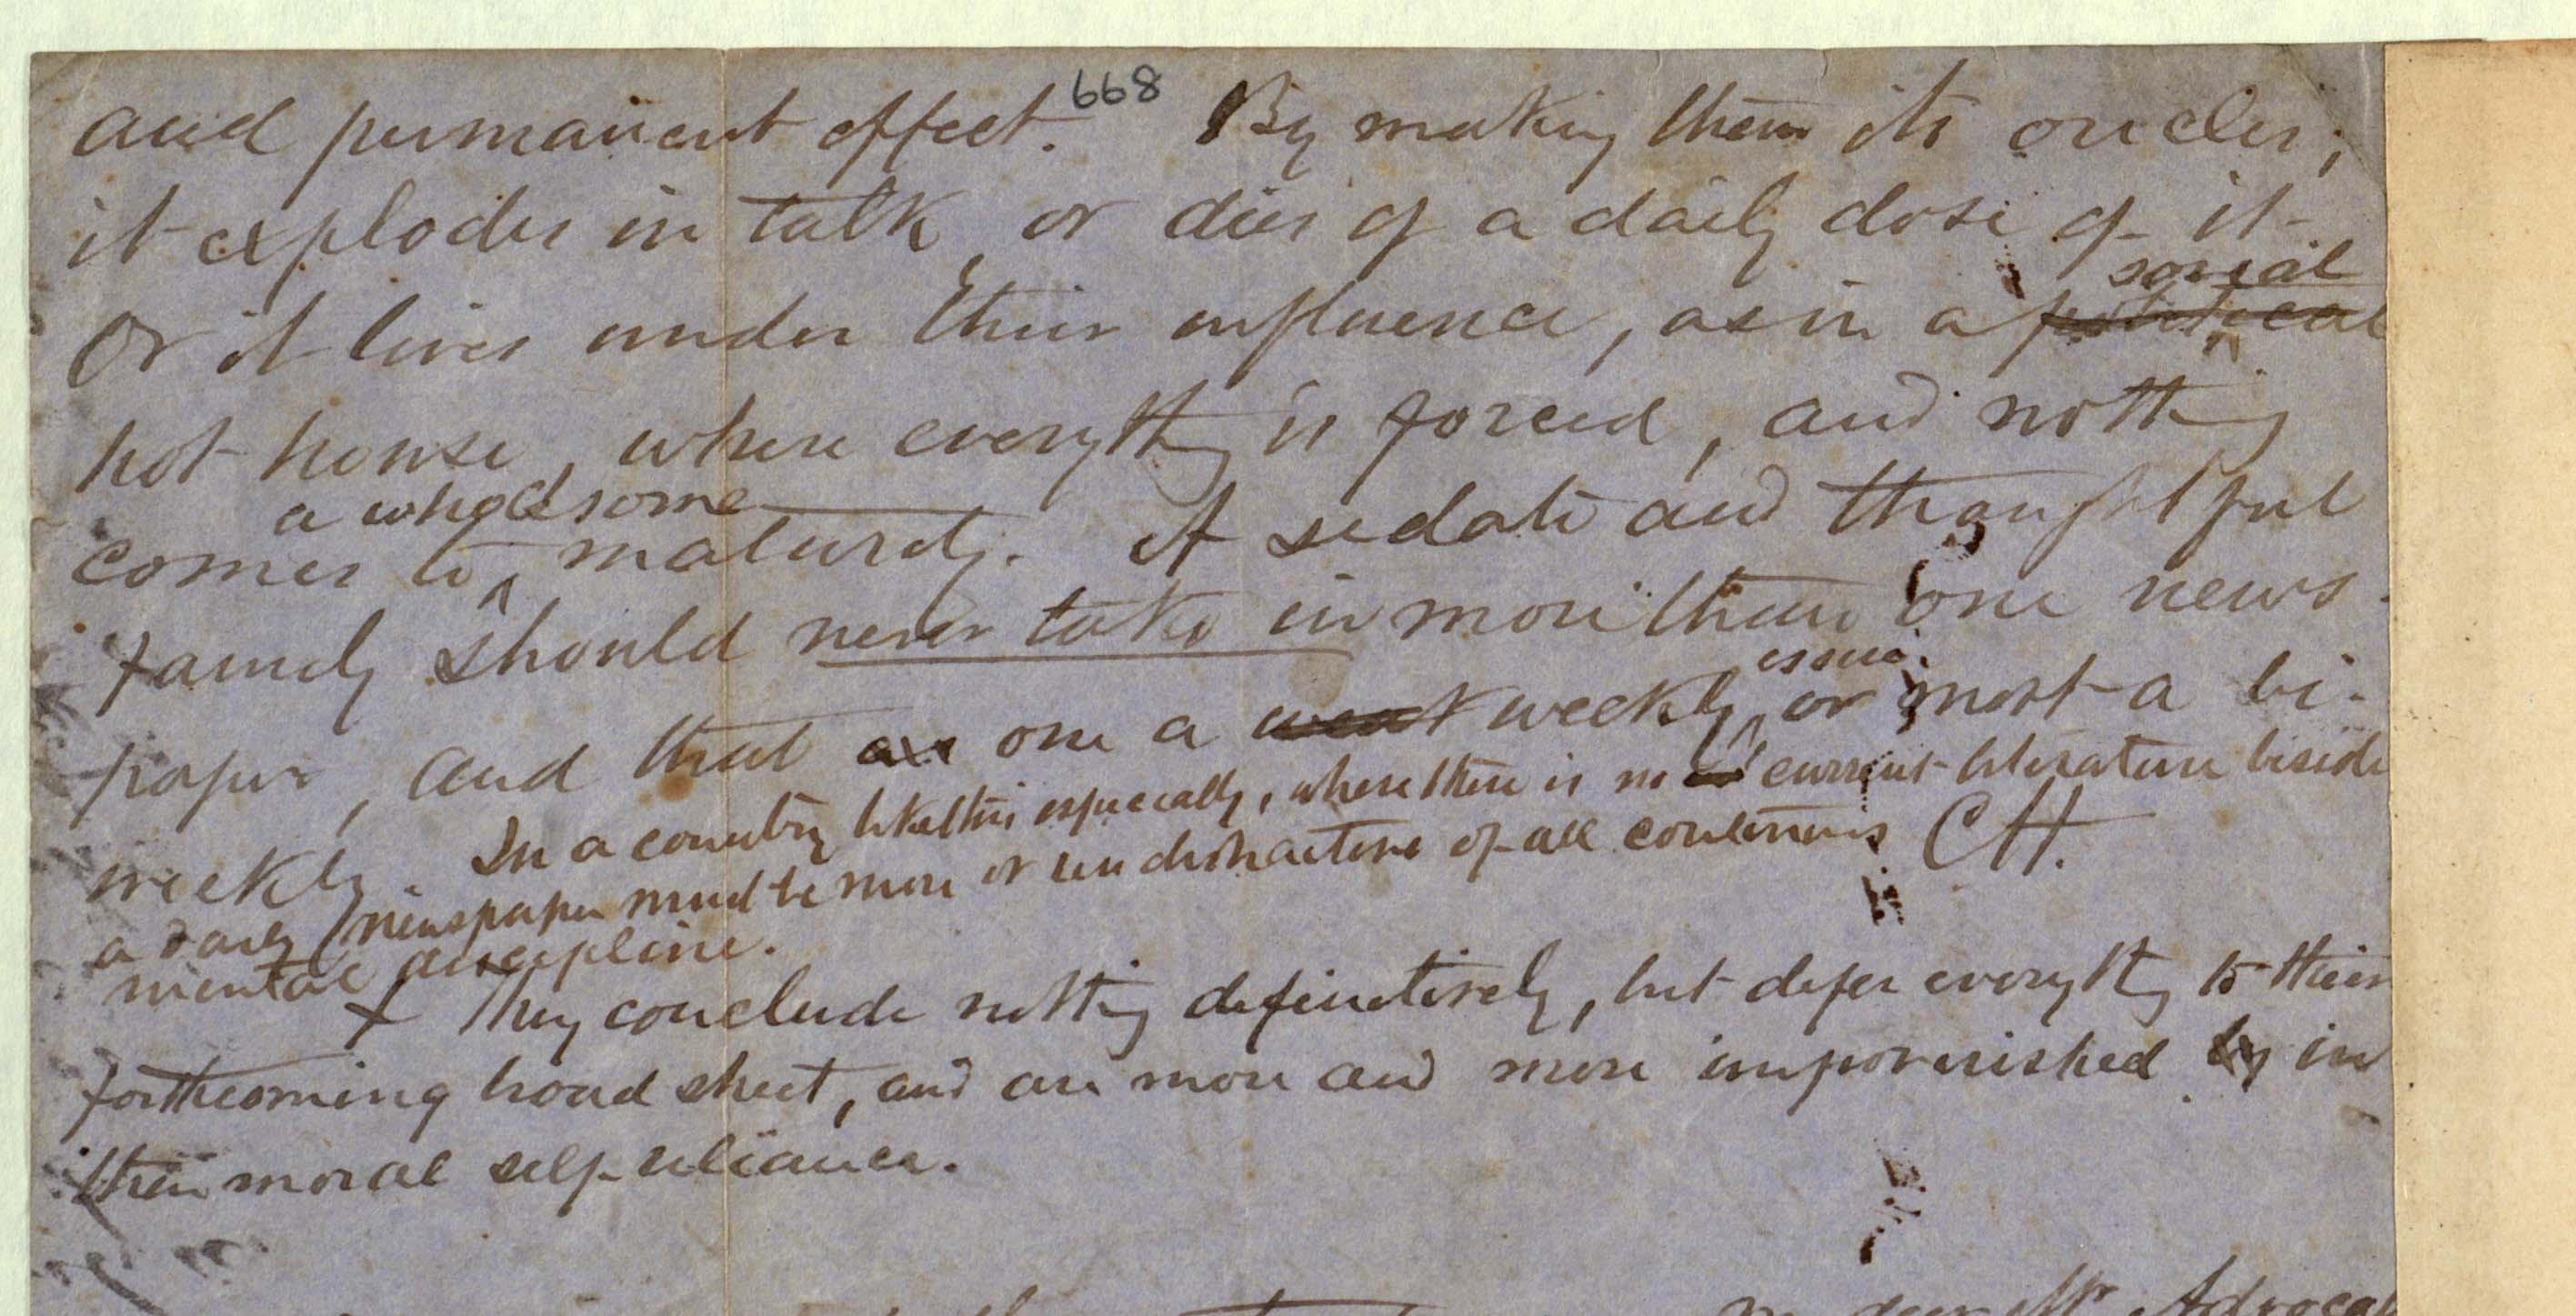 668
and permanent effect. By making them its oracles,
it explodes in talk, or dies of a daily dose of it.
social
Or it lives under their influence, as in a political
hot house, where everything is forced, and nothing
a wholesome
comes to maturity. A sedate and thoughtful
family should never take in more than one news-
issue
paper, and that one a weekly or most a bi-
weekly. In a country like this especially, where there is no current literature beside
a daily newspaper must be more or less destructive of all continuous CH.
mental discipline.
x They conclude nothing definitively, but defer everything to their
forthcoming broad sheet, and are more and more impoverished by in
their moral self reliance.
Mr Advocat